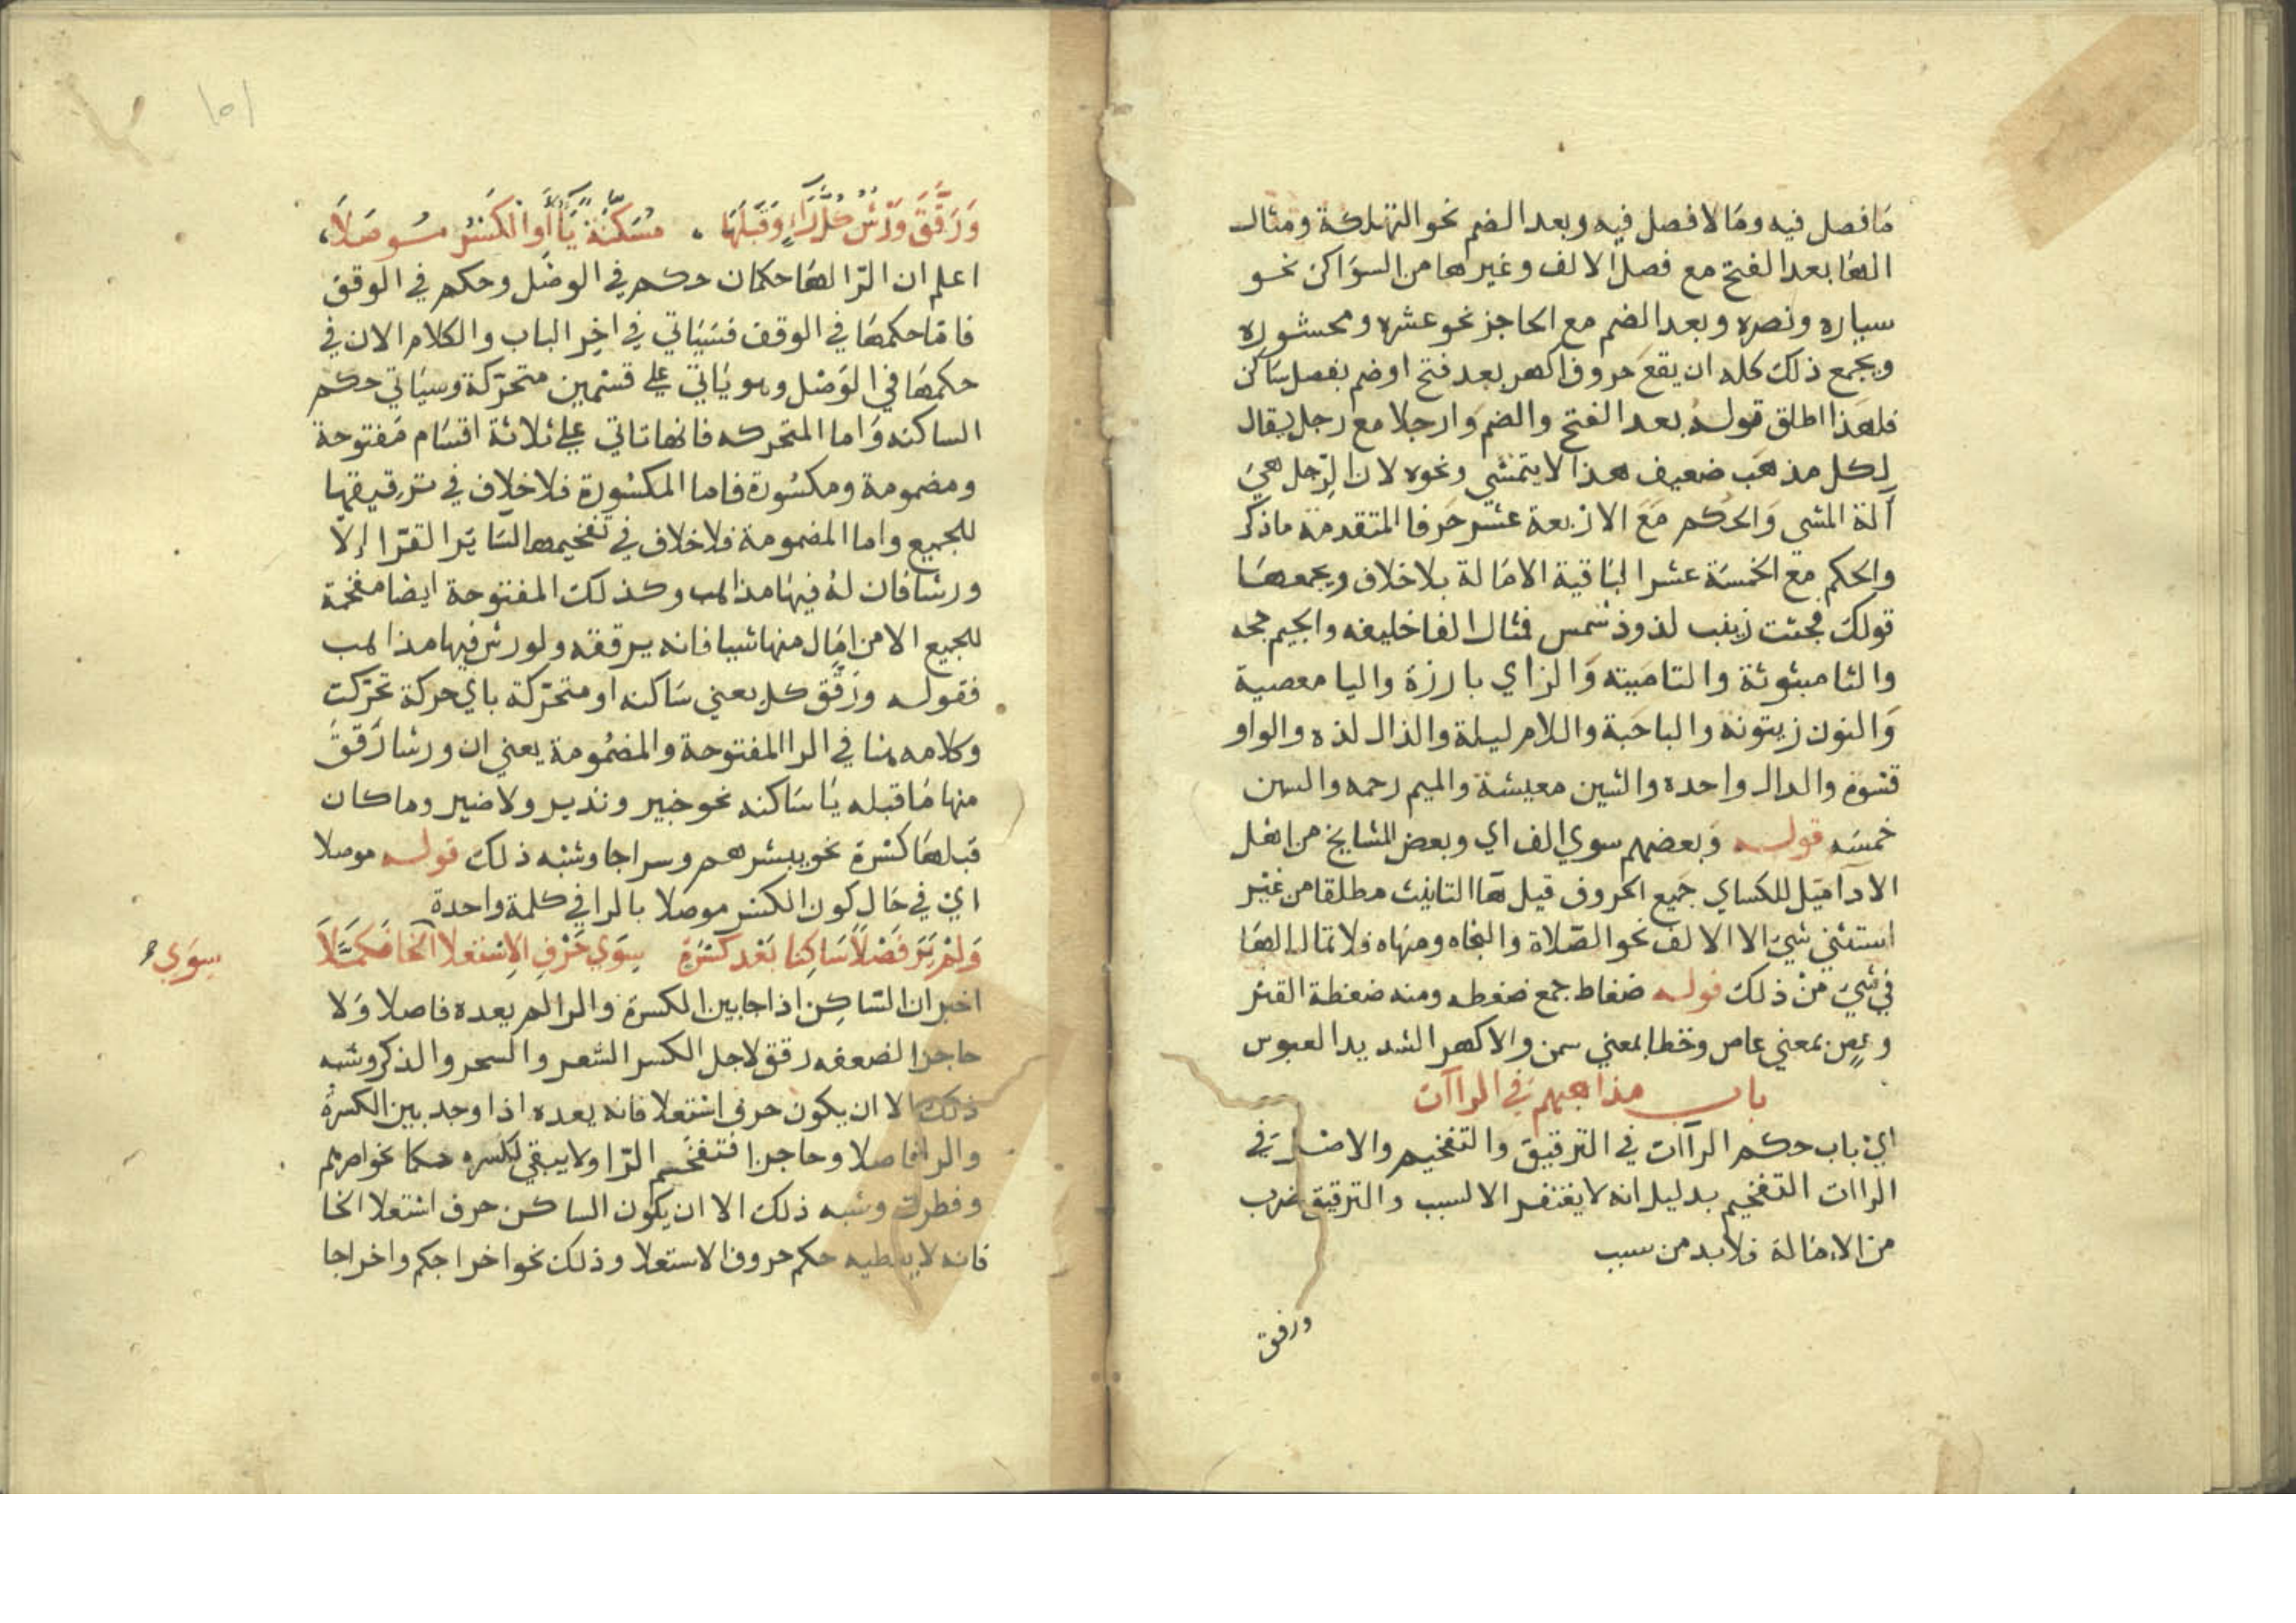 مَا فصل فيه ومَا لا فصل فيه وبعد الضم نحو التهلكة ومثال
الهَا بعد الفتح مع فصل الالف وغيرها من السوَاكن نحو
سياره ونصره وبعد الضم مع الحاجز نحو عشره ومحشوره
ويجمع ذلك كله ان يقعَ حروف اكهر بعد فتح اوضم بفصل سَاكن
فلهَذا اطلق قوله بعد الفتح والضم وَارجلا مع رجل يقال
لكل مذهَب ضعيف هذا لا يتمشي ونحوه لان الرِّجل هيَ
آلة المشي وَالحُكم مَعَ الاربعة عشر حَرفا المتقدمة ماذكر
والحكم مع الخمسَة عشر البَاقية الامَالة بلا خلاف ويجمعهَا
قولك فجثت زينب لذوذ شمس فمثال الفا خليفه والجيم حجه
والثا مبثوثة والتا مَيته وَالزاي بارزة واليا معصية
وَالنون زيتونة والبا حَبة واللام ليلة والذال لذه والواو
قسْوة والدال واحده والشين معيشة والميم رحمه والسين
خمسَه قوله وَبعضهم سوي الف اي وبعض المشايخ من اهْل
الادآ مَيّل للكساي جَميع الحروف قبل هَا التانيث مطلقا من غيْر
استثنى شيَ الا الالف نحو الصّلاة وَالنجاه ومنَاه فلا تمال الهَا
في شيَ منْ ذلك قوله ضغاط جمع ضغطه ومنه ضغطة القبر
وعصٍ بمعني عاص وخطا بمعني سمن والاكهر الشديد العبوس
باب مذاهبهم في الراآت
ايْ باب حكم الرآات في الترقيق والتفخيم والاصْل في
الراات التفخيم بدليل انه لا يفتقر الا لسبب والترقيق ضرب
من الاءمَالة فلا بد من سبب
ورقق
١٥١
وَرَقَّقَ وَرْشٌ كُلَّ رَاءٍ وَقَبْلَهَا . مُسَكَّنَةً يَاءٌ أَوِ الْكَسْرُ مُوصَلاَ،
اعلم ان الرّا لهَا حكمان حكم في الوصْل وحكم في الوقف
فامّا حكمهَا في الوقف فسَيَاتي في اخِر الباب والكلام الان في
حكمهَا في الوَصْل وهو يَاتي علي قسْمين متحرّكة وسيَاتي حكم
الساكنه وَاما المتحركه فانها تاتي علي ثلاثة اقسَام مَفتوحة
ومضمومة ومكسُورة فاما المكسُورة فلا خلاف في ترقيقها
للجميع واما المضمومة فلا خلاف في تفخيمها لسَائر القرّا إلا
ورشا فان لهُ فيهَا مذاهب وكذلك المفتوحة ايضا مفخمة
للجميع الا من امَال منها شيا فانه يرققه ولورش فيها مذاهب
فقوله ورَقّق كل يعني سَاكنه او متحرّكة باي حركة تحرّكت
وكلامه هنا في الرا المفتوحة والمضْمُومة يعني ان ورشا رَققَ
منها مَا قبله يَا سَاكنه نحو خبير ونذير ولا ضير وما كان
قبلهَا كسْرة نحو يبشرهم وسراجا وشبْه ذلك قوله موصلا
ايْ في حَال كون الكسْر موصلا بالرا في كلمة واحدة
وَلَمْ يَرَ فَصْلاً سَاكِنا بَعْد كَسْرَةٍ سِوَي حَرْفِ الِاسْتعلا سوي الخا فَكَمَّلاَ
اخبر ان السّاكِن اذا جا بين الكسرة والرا لم يعده فاصلا وَلا
حاجزا لضعفه رقق لاجل الكسر الشعر والسحر والذكر وشبه
ذلك الا ان يكون حرف استعلا فانه يعده اذا وجد بين الكسْرة
والرا فاصلا وحاجزا فتفخم الرّا ولا يبقي للكسره حكما نحو اصرهم
وفطرت وشبه ذلك الا ان يكون الساكن حرف استعلا الخا
فانه لا يعطيه حكم حروف الاستعلا وذلك نحو اخراجكم واخراجا